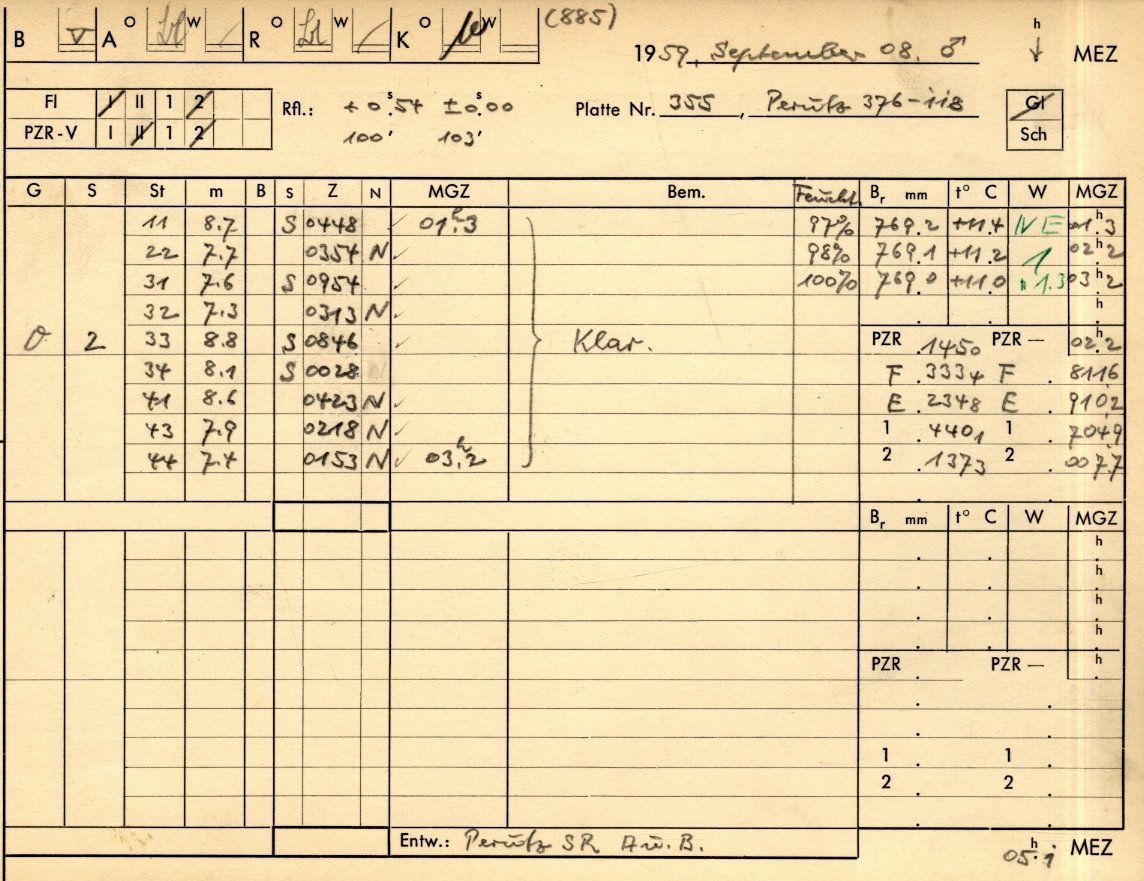 B V A O W R O W K O W (885)
1959, September 08. ♂ h MEZ
FI I II 1 2 Rfl.: +0.ˢ54 ±0.ˢ00 Platte Nr. 355, Perutz 376-118 Gl
PZR-V I II 1 2 100' 103' Sch
G S St m B S Z N MGZ Bem. Feucht. Bᵣ mm t° C W MGZ
11 8.7 S 0448 ✓ 01.ʰ3 97% 769.2 +11.4 NE 01.ʰ3
22 7.7 0354 N ✓ 98% 769.1 +11.2 1 02.ʰ2
31 7.6 S 0954 ✓ 100% 769.0 +11.0 " 1.3 03.ʰ2
32 7.3 0313 N ✓ h
0 2 33 8.8 S 0846 ✓ Klar. PZR .1450 PZR — 02.ʰ2
34 8.1 S 0028 ✓ F .3334 F . 8116
41 8.6 0423 N ✓ E .2348 E . 9102
43 7.9 0218 N ✓ 1 .4401 1 . 7049
44 7.4 0153 N ✓ 03.ʰ2 2 .1373 2 . 0077
Bᵣ mm t° C W MGZ
h
h
h
h
PZR PZR — h
1 1
2 2
Entw.: Perutz SR Au. B.
05.ʰ1 MEZ